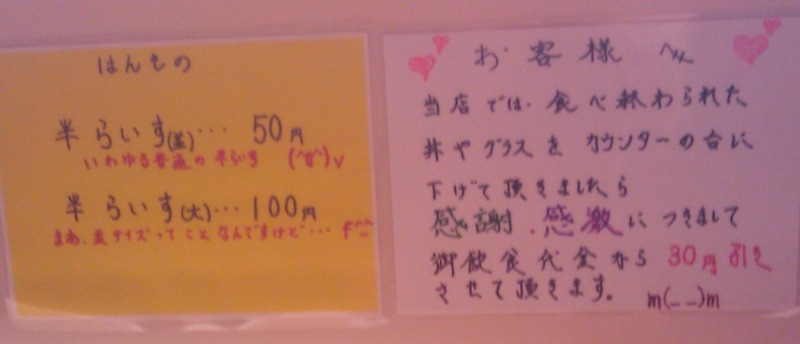 はんもの
半らいす(並)… 50円
いわゆる普通の半らいす (^0^)v
半らいす(大)… 100円
まあ、並サイズってことなんですけど… f^_^
お客様へ
当店では、食べ終わられた
丼やグラスをカウンターの台に
下げて頂きましたら
感謝.感激につきまして
御飲食代金から30円引き
させて頂きます。 m(__)m